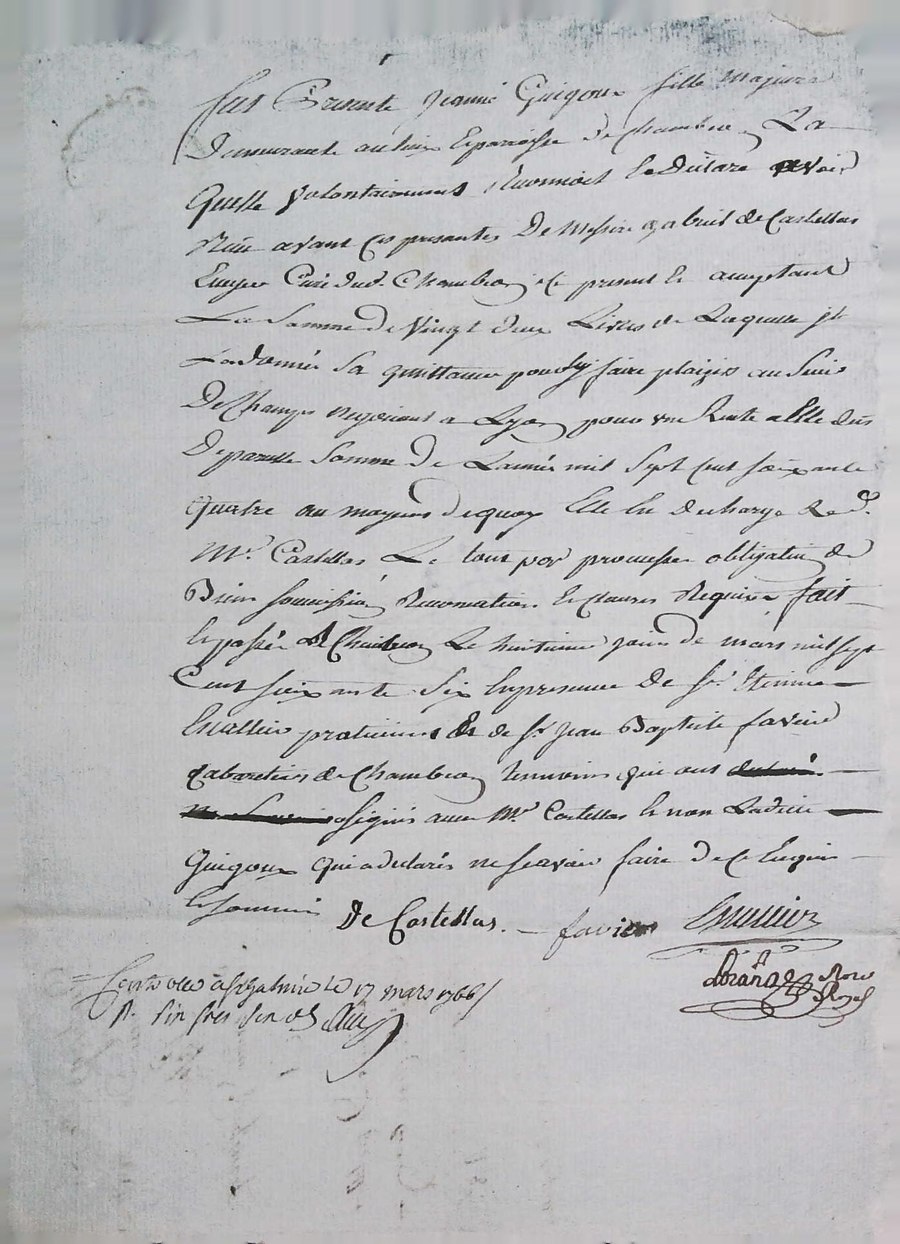 fut Presente Jeanne Guigoux fille Majeure
Demeurante au lieu & paroisse de Chambeon La
Quelle volontairement Reconnoit & declare avoir
Reçu avant ces presentes De Messire gabriel de Castellas
Ecuyer Curé dud. Chambeon ice present & acceptant
La Somme de Vingt deux Livres de Laquelle
La donné sa quittance pour faire plaizir au Sieur
Dechamps negotiant a Lyon pour une Rente a Elle dûe
De pareille Somme de Lannée mil Sept Cent soixante
Quatre au moyens de quoy Elle En decharge Led.
Mr. Castellas Le tout par promesse obligation de
Biens soumissions Renonciations & Clauses Requise fait
& passé a Chambeon Le huitieme jour de mars mil sept
Cent soixante Six En presence de Sr. Etienne
praticiens & de Sr. Jean Baptiste favier
Cabaretier de Chambeon temoins qui ont
signés avec Mr. Castellas & non Ladite
Guigoux qui a declarés ne scavoir faire de ce Enquis
& sommé
De Castellas. favier
17 mars 1766